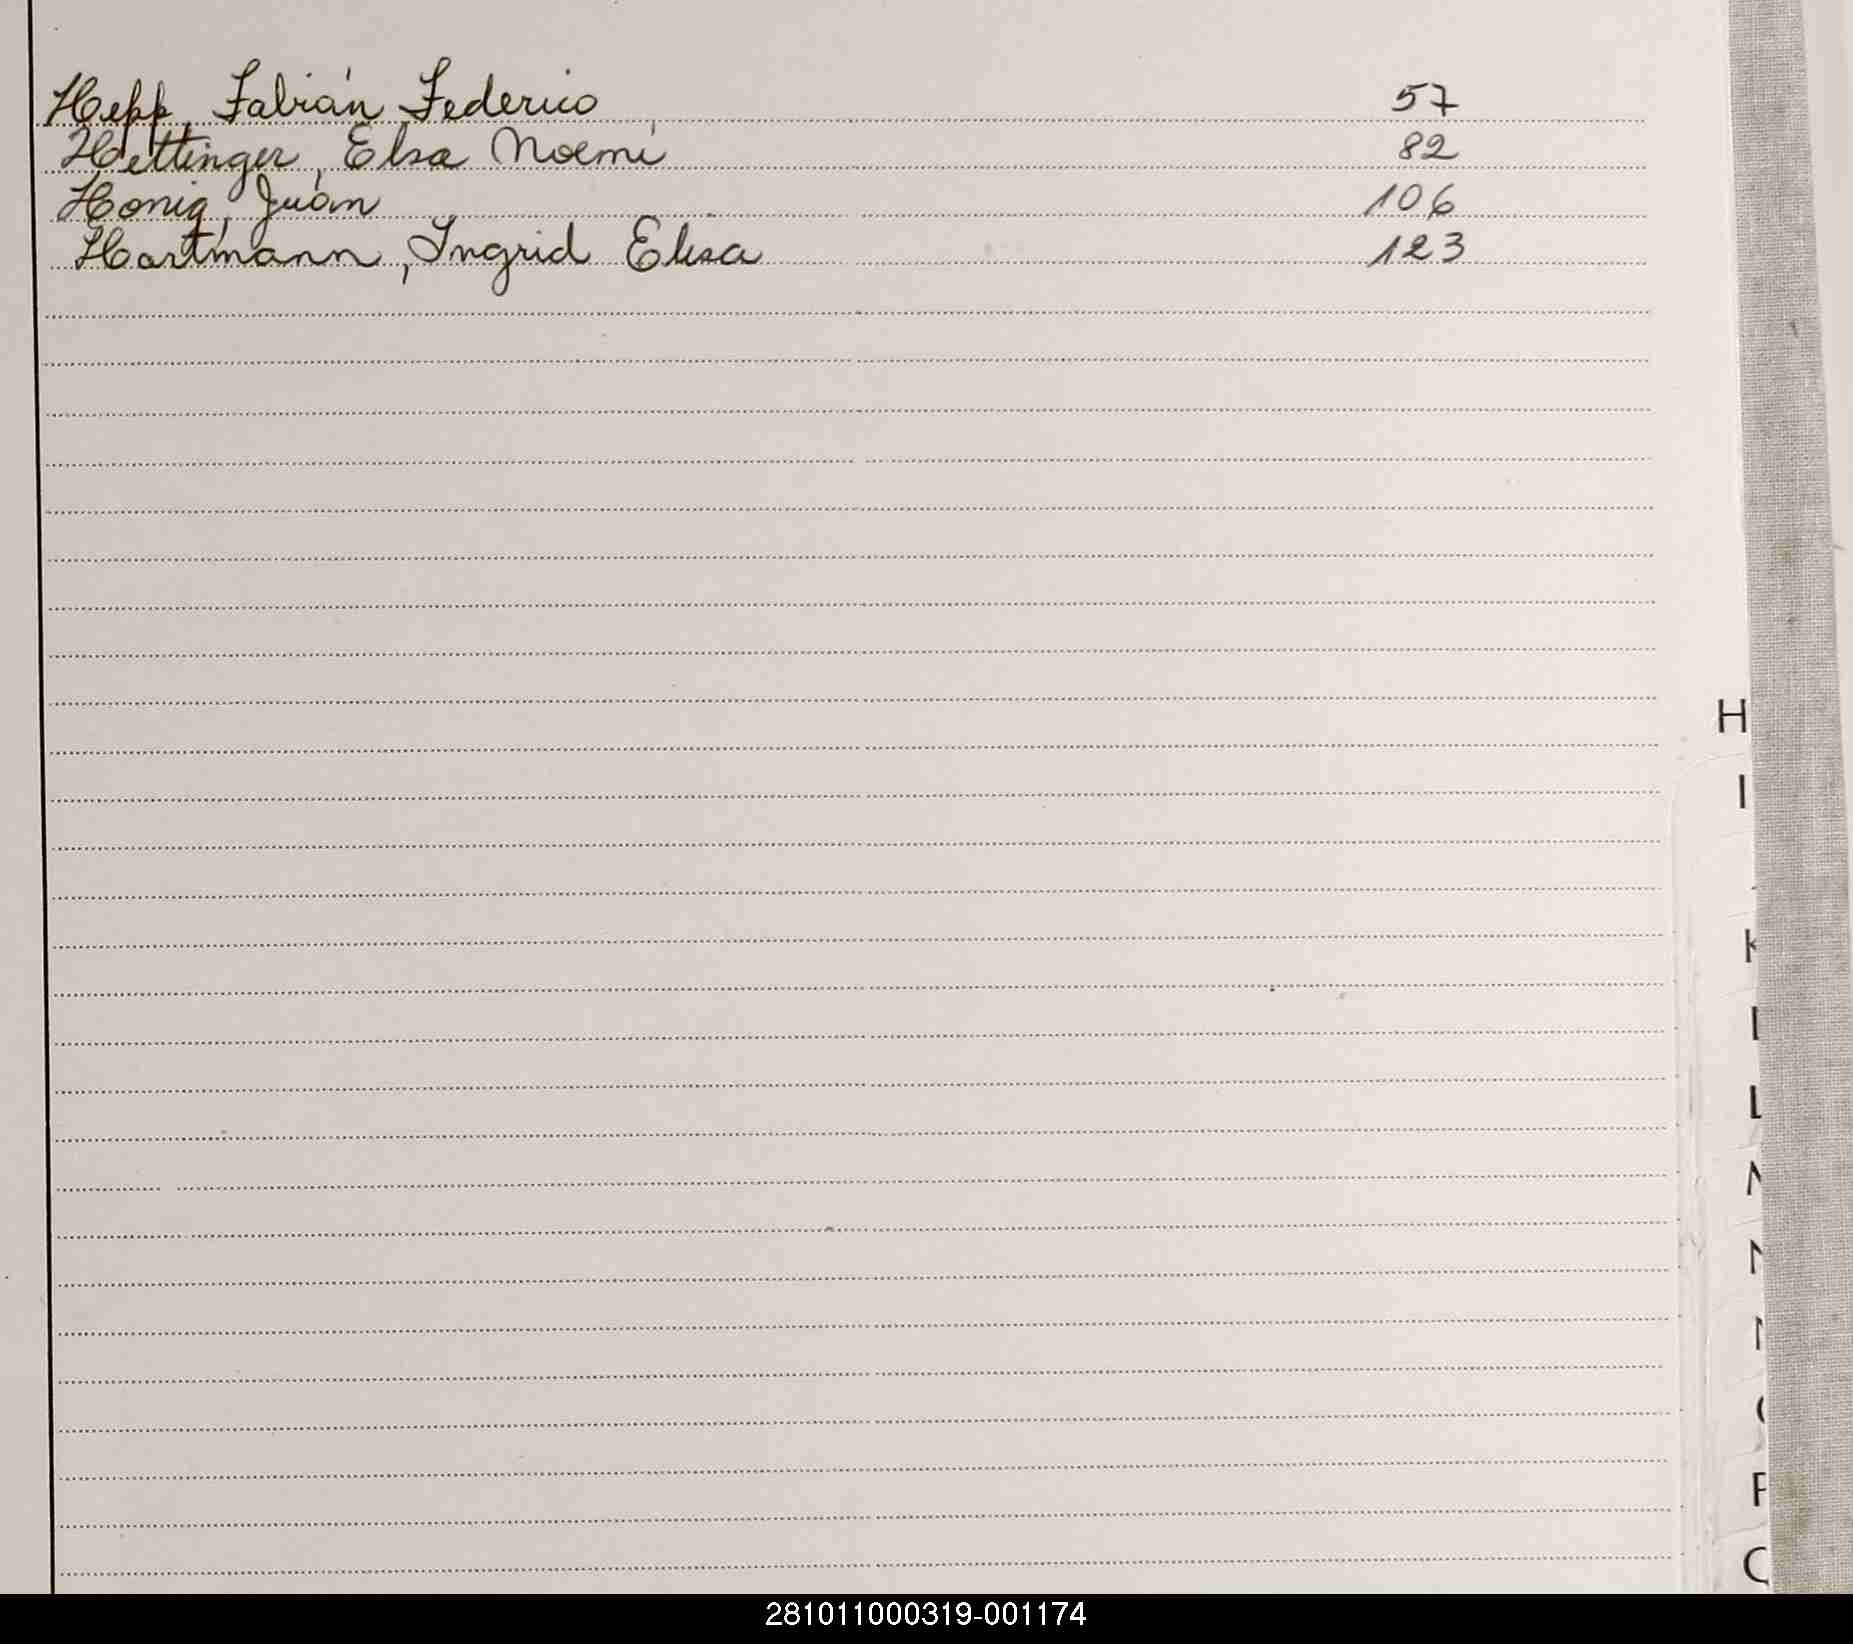 Hepp, Fabián Federico 57
Hettinger, Elsa Noemí 82
Honig, Juan 106
Hartmann, Ingrid Elisa 123
H
I
K
L
P
281011000319-001174